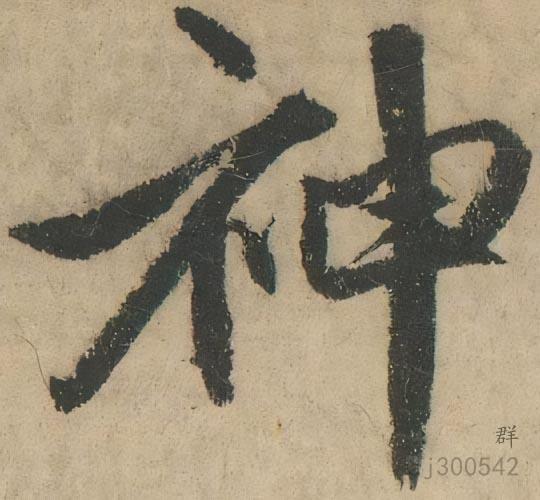 神
群
j300542